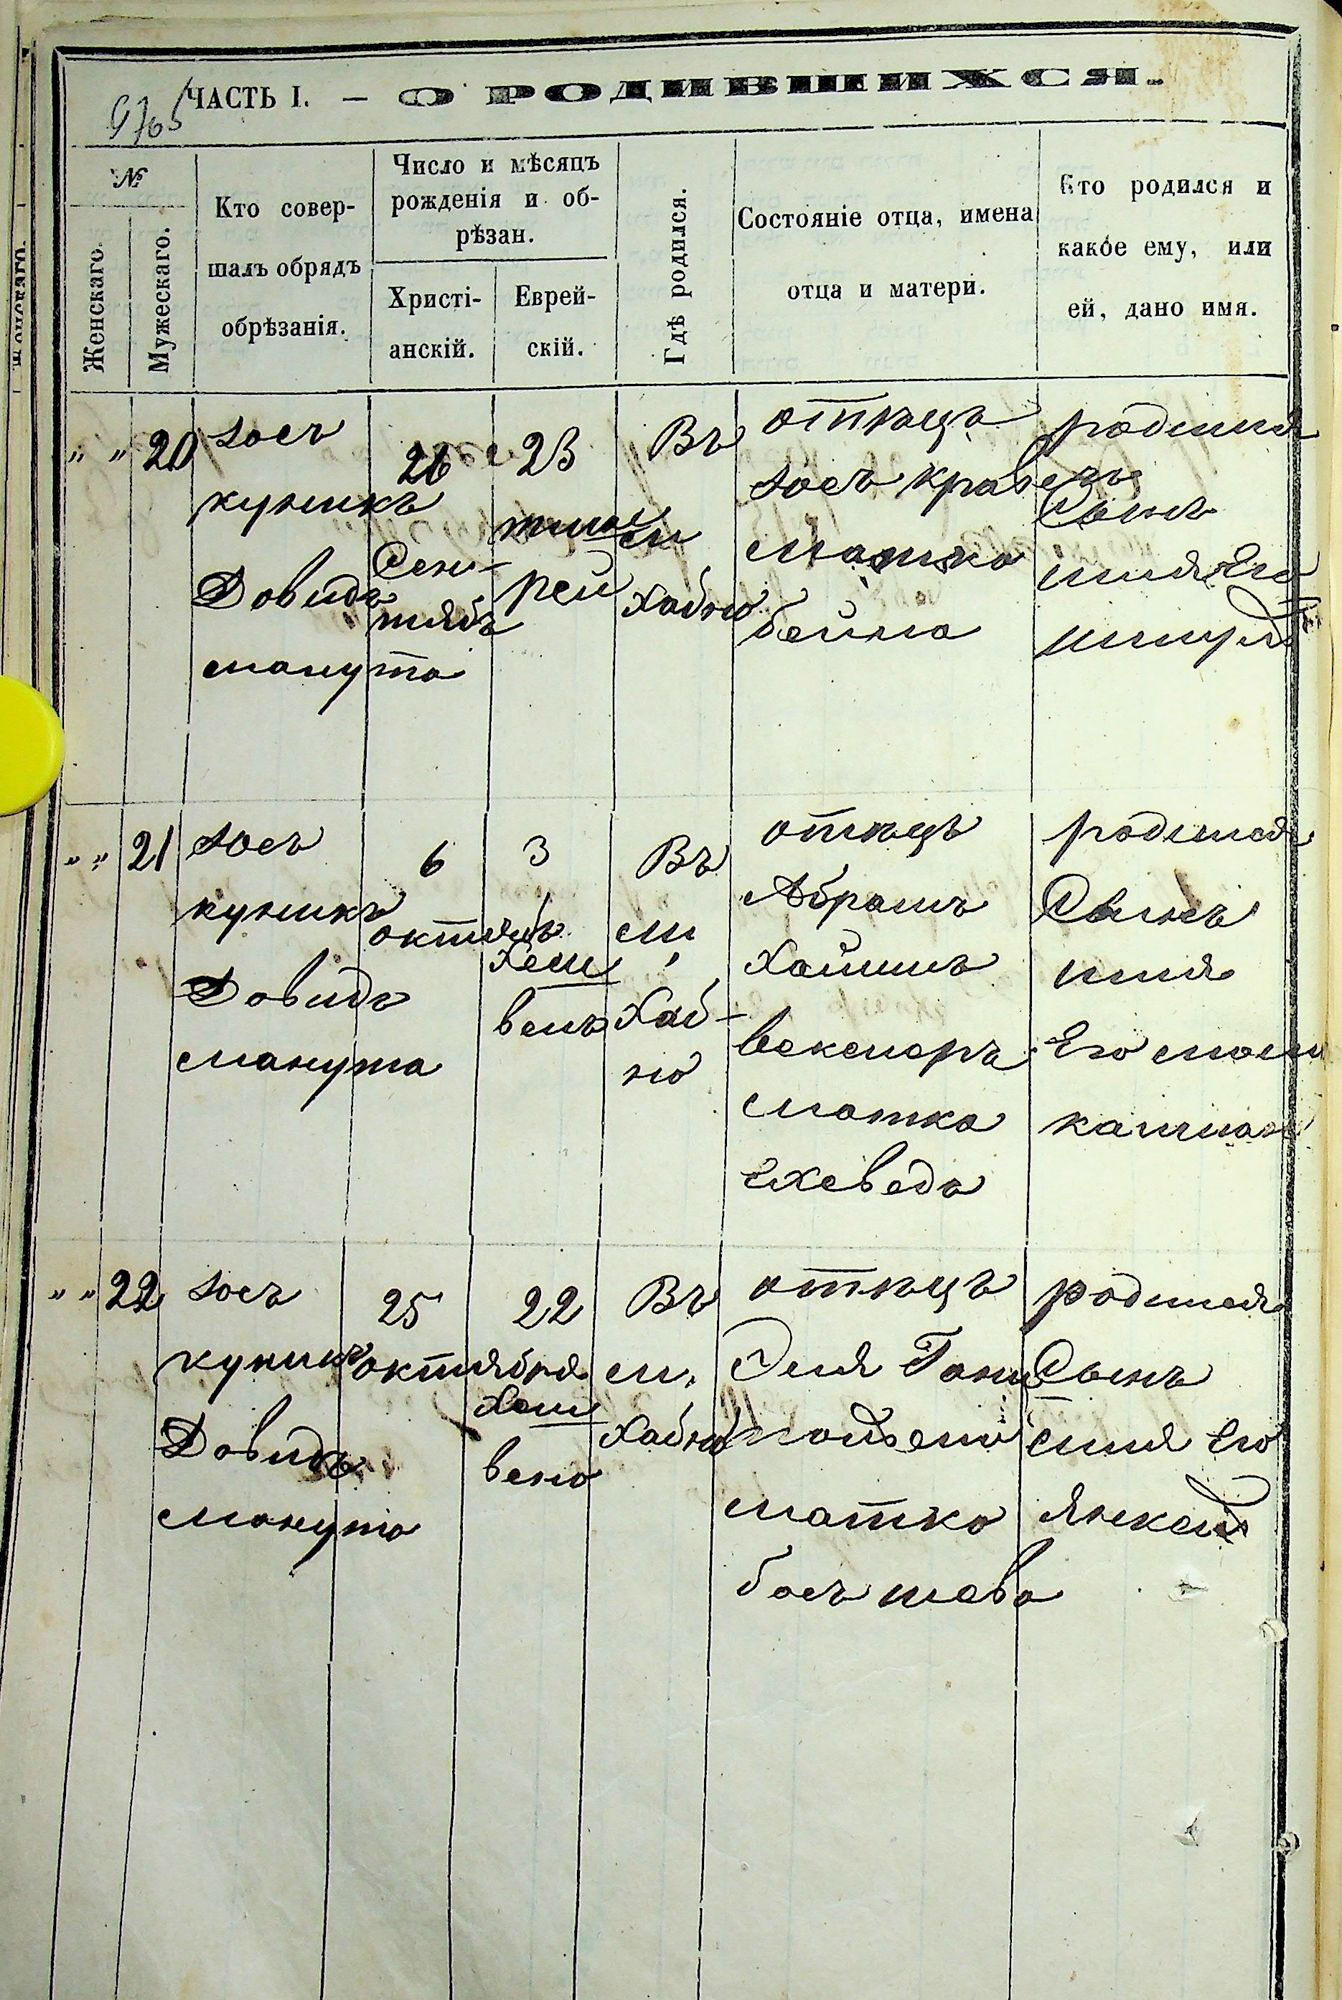 ЧАСТЬ I. — О РОДИВШИХСЯ.
№
Женскаго.
Мужескаго.
Кто совер-
шалъ обрядъ
обрѣзанія.
Число и мѣсяцъ
рожденія и об-
рѣзан.
Христі-
анскій.
Еврей-
скій.
Гдѣ родился.
Состояніе отца, имена
отца и матери.
Кто родился и
какое ему, или
ей, дано имя.
" " 20
Іосъ
куникъ
Довидъ
манута
26
Сен-
тябъ
23
тиш
рей
Въ
м
Хабно
отецъ
Іосъ кравецъ
матка
бейла
родился
Сынъ
имя Его
" " 21
Іосъ
куникъ
Довидъ
манута
6
октябъ
3
Хеш
венъ
Въ
м,
Хаб-
но
отецъ
Абрамъ
Хаимъ
векслеръ
матка
Ехеведъ
родился
Сынъ
имя
Его
кальман
" " 22
Іосъ
куникъ
Довидъ
манута
25
октября
22
Хеш
вено
Въ
м,
Хабно
отецъ
Эля
матка
бось шева
родился
Сынъ
имя Его
Янкель